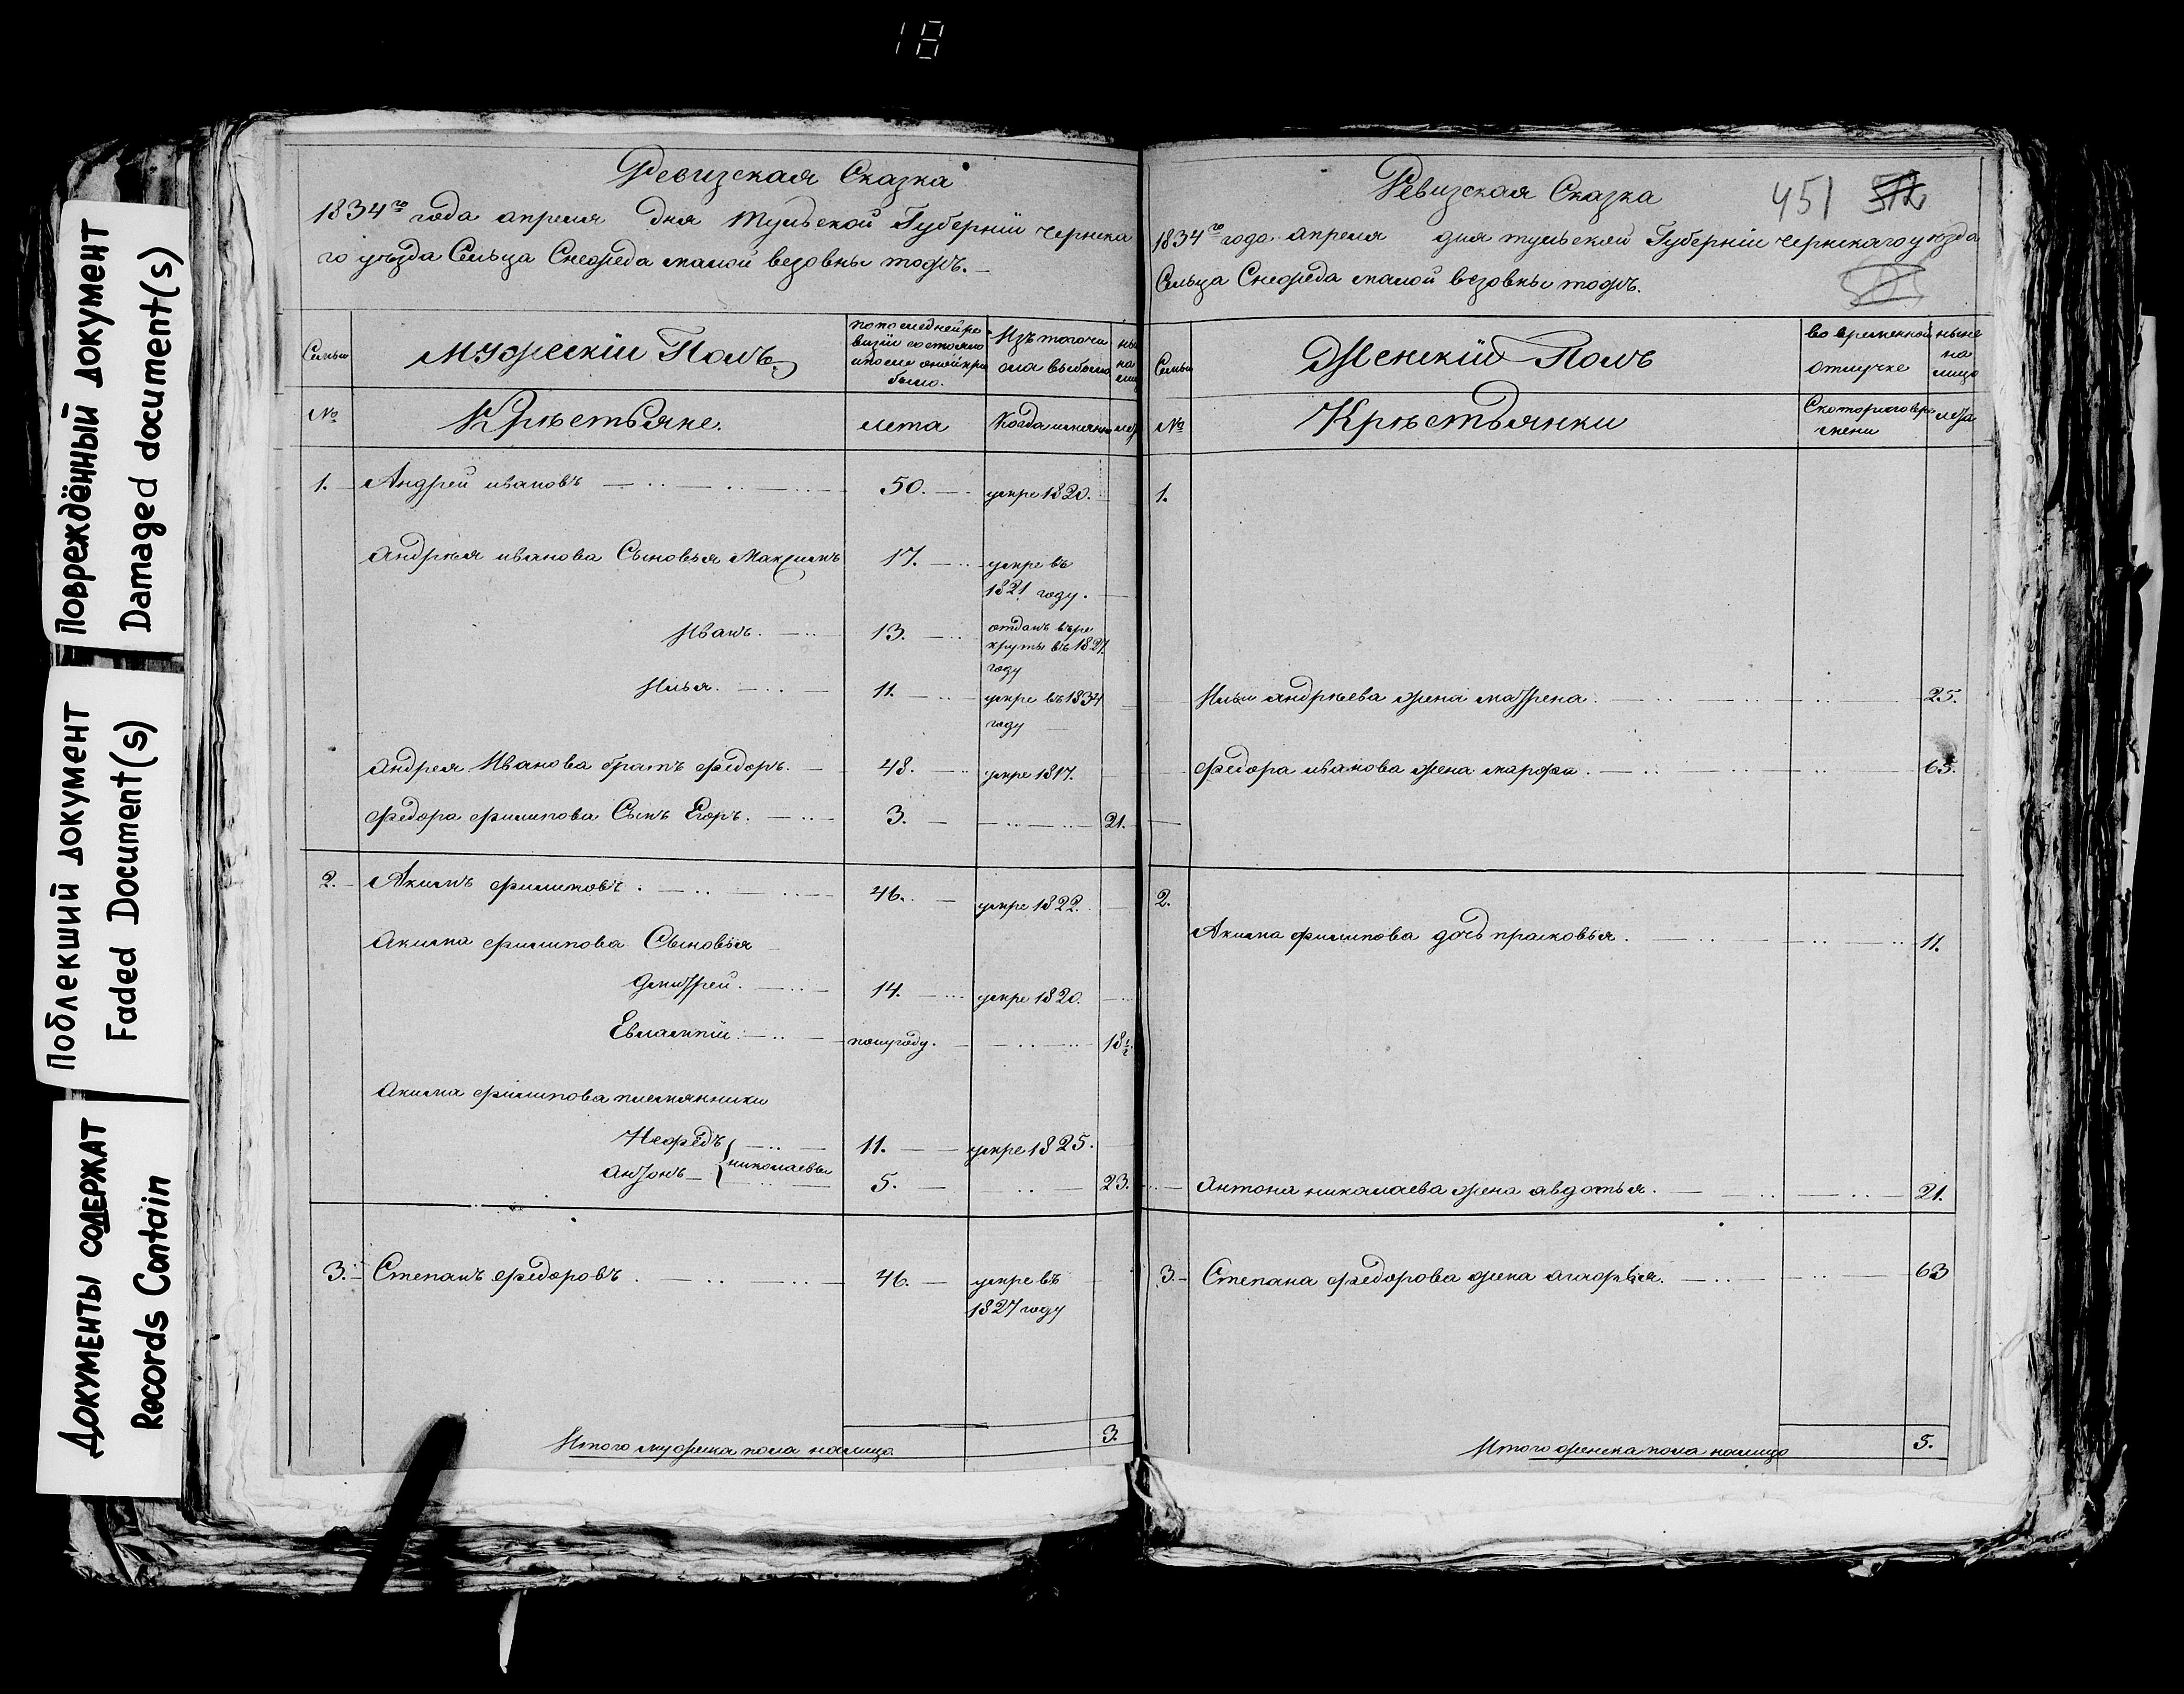 18
Повреждённый документ
Damaged document(s)
Поблекший документ
Faded Document(s)
Документы содержат
Records Contain
Ревизская Сказка
1834го года апреля дня Тульской Губернїи Чернска
го уѣзда Сельца Снежеда малой
Семьи
Мужескїй Полъ
по последней ре
визїи состояло
и после оной при
было.
Изъ того чи
сла выбыло
№
Крѣстьяне.
лета
Когда именно
1. Андрей ивановъ 50. умре 1820.
Андрѣя иванова Сыновья Максимъ 17. умре въ
1821 году.
Иванъ. 13. отданъ въ ре
круты въ 1827.
году
Илья. 11. умре въ 1834
году
Андрея Иванова братъ федоръ. 48. умре 1817.
федора филипова Сынъ Егоръ. 3. 21.
2. Акимъ филиповъ. 46. умре 1822.
Акима филипова Сыновья
дмитрей. 14. умре 1820.
Евлампїй. полугоду. 18½
Акима филипова племянники
Нефедъ 11. умре 1825.
николаевы
антонъ 5. 23.
3. Степанъ федоровъ. 46. умре въ
1827 году
Итого мужеска пола налицо 3.
Ревизская Сказка
451 572
1834го года апреля дня тульской Губернїи чернскаго уѣзда
Сельца Снежеда малой
Семьи
Женскїй Полъ
во временной
отлучке
ныне
на
лицо
№
Крѣстьянки
С котораго вре
мени
лета
1.
Ильи андрѣева жена матрена. 25.
федора иванова жена марфа. 65.
2.
Акима филипова дочь прасковья. 11.
Антона николаева жена авдотья. 21.
3. Степана федорова жена агафья. 63
Итого женска пола налицо 5.